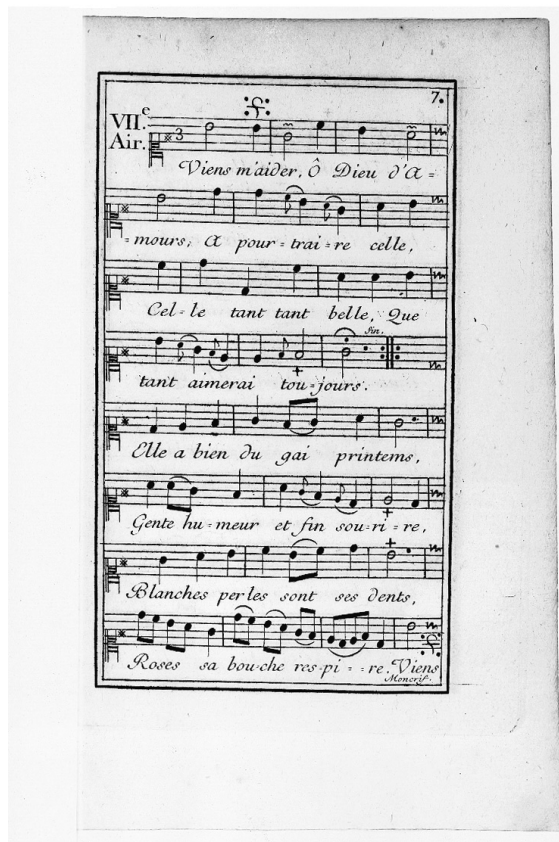 7.
VII.e
Air.
3
Viens m'aider, Ô Dieu d'A =
= mours; A pour = trai = re celle,
Cel = le tant tant belle, Que
fin.
tant aimerai tou = jours.
Elle a bien du gai printems,
Gente hu = meur et fin sou = ri = re,
Blanches perles sont ses dents,
Roses sa bou-che res-pi = = re. Viens
Moncrif.